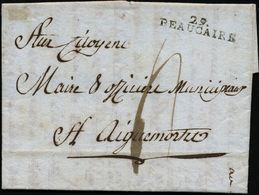 29
BEAUCAIRE
Aux Citoyens
Maire & officiers Municipaux
A Aiguemortes